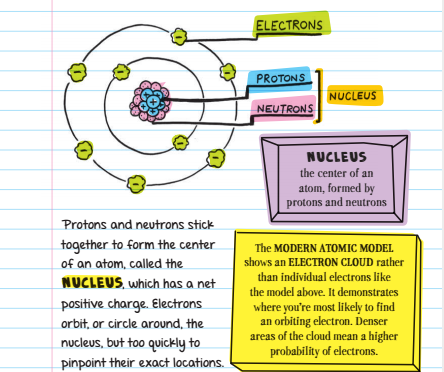 ELECTRONS
PROTONS
NEUTRONS
NUCLEUS
NUCLEUS
the center of an
atom, formed by
protons and neutrons
Protons and neutrons stick
together to form the center
of an atom, called the
NUCLEUS, which has a net
positive charge. Electrons
orbit, or circle around, the
nucleus, but too quickly to
pinpoint their exact locations.
The MODERN ATOMIC MODEL
shows an ELECTRON CLOUD rather
than individual electrons like
the model above. It demonstrates
where you're most likely to find
an orbiting electron. Denser
areas of the cloud mean a higher
probability of electrons.